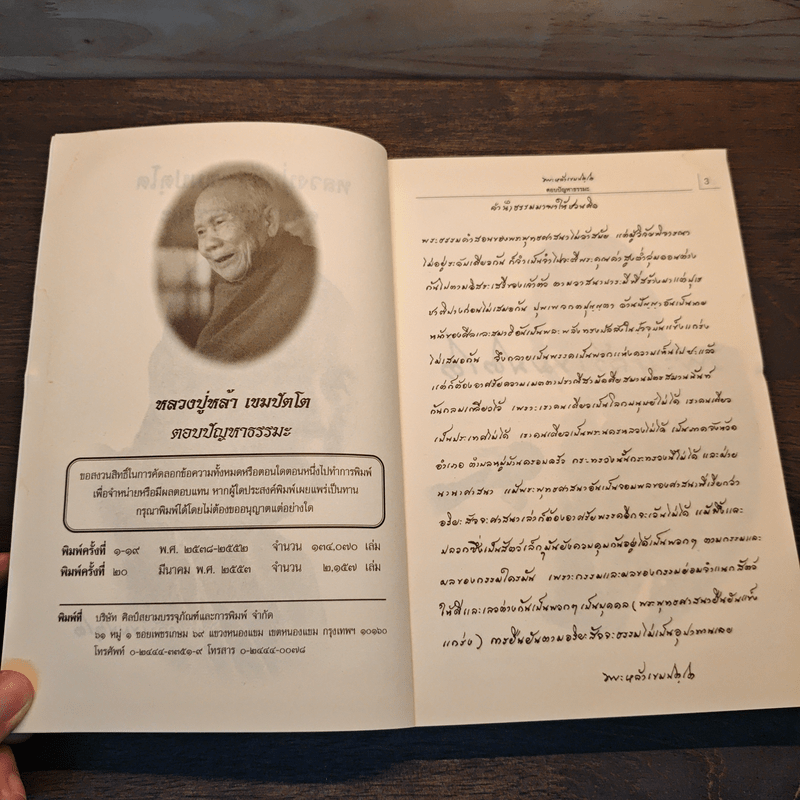 หลวงปู่หล้า เขมปัตโต
ตอบปัญหาธรรมะ
ขอสงวนสิทธิ์ในการคัดลอกข้อความทั้งหมดหรือตอนใดตอนหนึ่งไปทำการพิมพ์
เพื่อจำหน่ายหรือมีผลตอบแทน หากผู้ใดประสงค์พิมพ์เผยแพร่เป็นทาน
กรุณาพิมพ์ได้โดยไม่ต้องขออนุญาตแต่อย่างใด
พิมพ์ครั้งที่ ๑-๑๙ พ.ศ. ๒๕๓๘-๒๕๕๒ จำนวน ๑๓๔,๐๗๐ เล่ม
พิมพ์ครั้งที่ ๒๐ มีนาคม พ.ศ. ๒๕๕๓ จำนวน ๒,๑๕๗ เล่ม
พิมพ์ที่ บริษัท ศิลป์สยามบรรจุภัณฑ์และการพิมพ์ จำกัด
๖๑ หมู่ ๑ ซอยเพชรเกษม ๖๙ แขวงหนองแขม เขตหนองแขม กรุงเทพฯ ๑๐๑๖๐
โทรศัพท์ ๐-๒๔๔๔-๓๓๕๑-๙ โทรสาร ๐-๒๔๔๔-๐๐๗๘
พระหล้าเขมปตฺโต
ตอบปัญหาธรรมะ
3
พระธรรมคำสอนของพระพุทธศาสนาไม่ล้าสมัย แต่ผู้วินิจพิจารณา
ไม่อยู่ระดับเดียวกัน
ไม่เสมอกัน จึงกลายเป็นพรรคเป็นพวกแห่งความเห็นไปซะแล้ว
แต่ก็ต้องอาศัยความเมตตาปรานีสามัคคี
กันกลมเกลียวไว้ เพราะเราคนเดียวเป็นโลกมนุษย์ไม่ได้ เราคนเดียว
เป็นประเทศไม่ได้ เราคนเดียวเป็นพระนครหลวงไม่ได้ เป็นภาคจังหวัด
อำเภอ ตำบลหมู่บ้านครอบครัว กระทรวงนั้นกระทรวงนี้ไม่ได้ และฝ่าย
นานาศาสนา แม้พระพุทธศาสนาอันเป็นจอมพลของศาสนาที่เรียกว่า
อริยสัจจะศาสนาเล่าก็ต้องอาศัยพรรคอีกจะเว้นไม่ได้ แม้ผึ้งและ
ปลวกซึ่งเป็นสัตว์เล็กๆมันยังควบคุมกันอยู่ได้เป็นพวกๆ ตามกรรมและ
ผลของกรรมใครมัน เพราะกรรมและผลของกรรมย่อมจำแนกสัตว์
ให้ดีและเลวต่างกันเป็นพวกๆเป็นบุคคล (พระพุทธศาสนายืนยันแข็ง
แกร่ง) การยืนยันตามอริยสัจจะธรรมไม่เป็นอุปาทานเลย
พระหล้าเขมปตฺโต